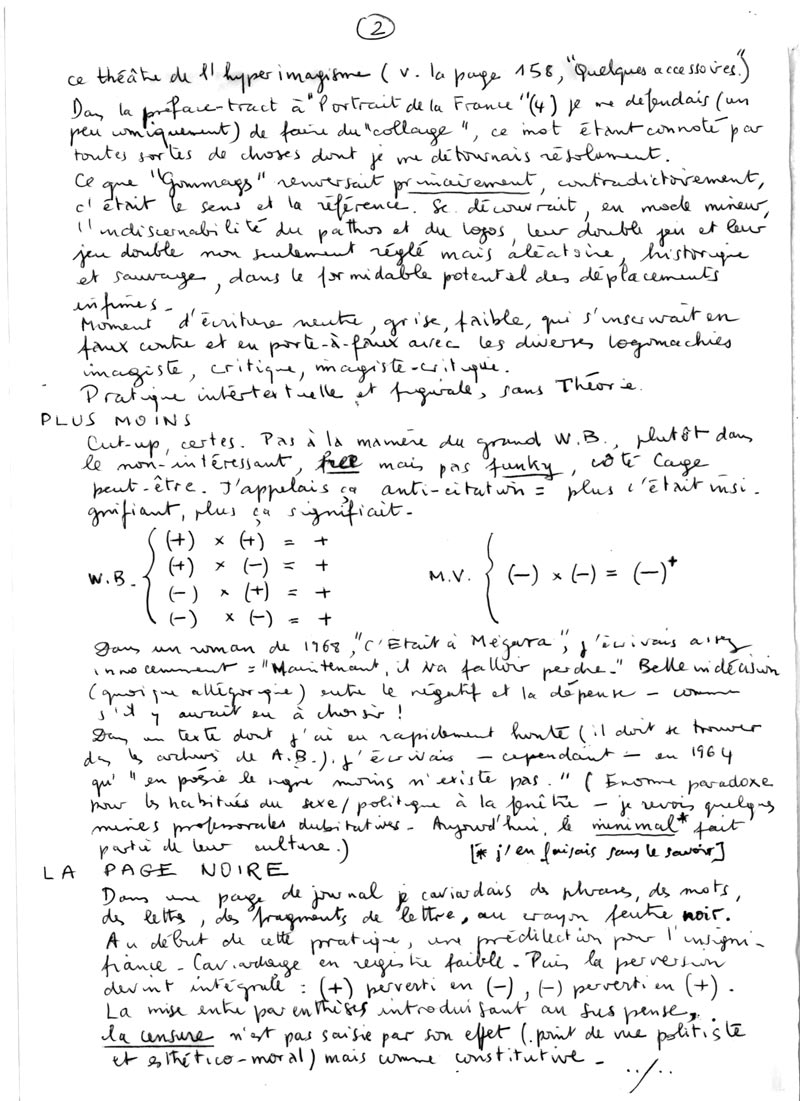 2
ce théâtre de l'hyperimagisme (v. la page 158, "Quelques accessoires.")
Dans la préface-tract à "Portrait de la France" (4) je me défendais (un
peu comiquement) de faire du "collage", ce mot étant connoté par
toutes sortes de choses dont je me détournais résolument.
Ce que "Gommages" renversait primairement, contradictoirement,
c'était le sens et la référence. Se découvrait, en mode mineur,
l'indiscernabilité du pathos et du logos, leur double jeu et leur
jeu double non seulement réglé mais aléatoire, historique
et sauvage, dans le formidable potentiel des déplacements
infimes -
Moment d'écriture neutre, grise, faible, qui s'inscrivait en
faux contre et en porte-à-faux avec les diverses logomachies
imagiste, critique, imagiste-critique.
Pratique intertextuelle et figurale, sans Théorie.
PLUS MOINS
Cut-up, certes. Pas à la manière du grand W.B., plutôt dans
le non-intéressant, free mais pas funky, côté Cage
peut-être. J'appelais ça anti-citation = plus c'était insi-
gnifiant, plus ça signifiait -
W.B. { (+) × (+) = +
(+) × (-) = +
(-) × (+) = +
(-) × (-) = +
M.V. { (-) × (-) = (-)⁺
Dans un roman de 1968, "C'Etait à Mégara", j'écrivais assez
innocemment = "Maintenant, il va falloir perdre." Belle indécision
(quoique allégorique) entre le négatif et la dépense - comme
s'il y aurait eu à choisir !
Dans un texte dont j'ai eu rapidement honte (il doit se trouver
ds les archives de A.B.), j'écrivais - cependant - en 1964
qu' "en poésie le signe moins n'existe pas." (Enorme paradoxe
pour les habitués du sexe/politique à la fenêtre - je revois quelques
mines professorales dubitatives - Aujourd'hui, le minimal* fait
partie de leur culture.)
[* j'en faisais sans le savoir]
LA PAGE NOIRE
Dans une page de journal je caviardais des phrases, des mots,
des lettres, des fragments de lettre, au crayon feutre noir.
Au début de cette pratique, une prédilection pour l'insigni-
fiance - Caviardage en registre faible - Puis la perversion
devint intégrale : (+) perverti en (-), (-) perverti en (+).
La mise entre parenthèses introduisant au suspense,
la censure n'est pas saisie par son effet (point de vue politiste
et esthético-moral) mais comme constitutive -
../..